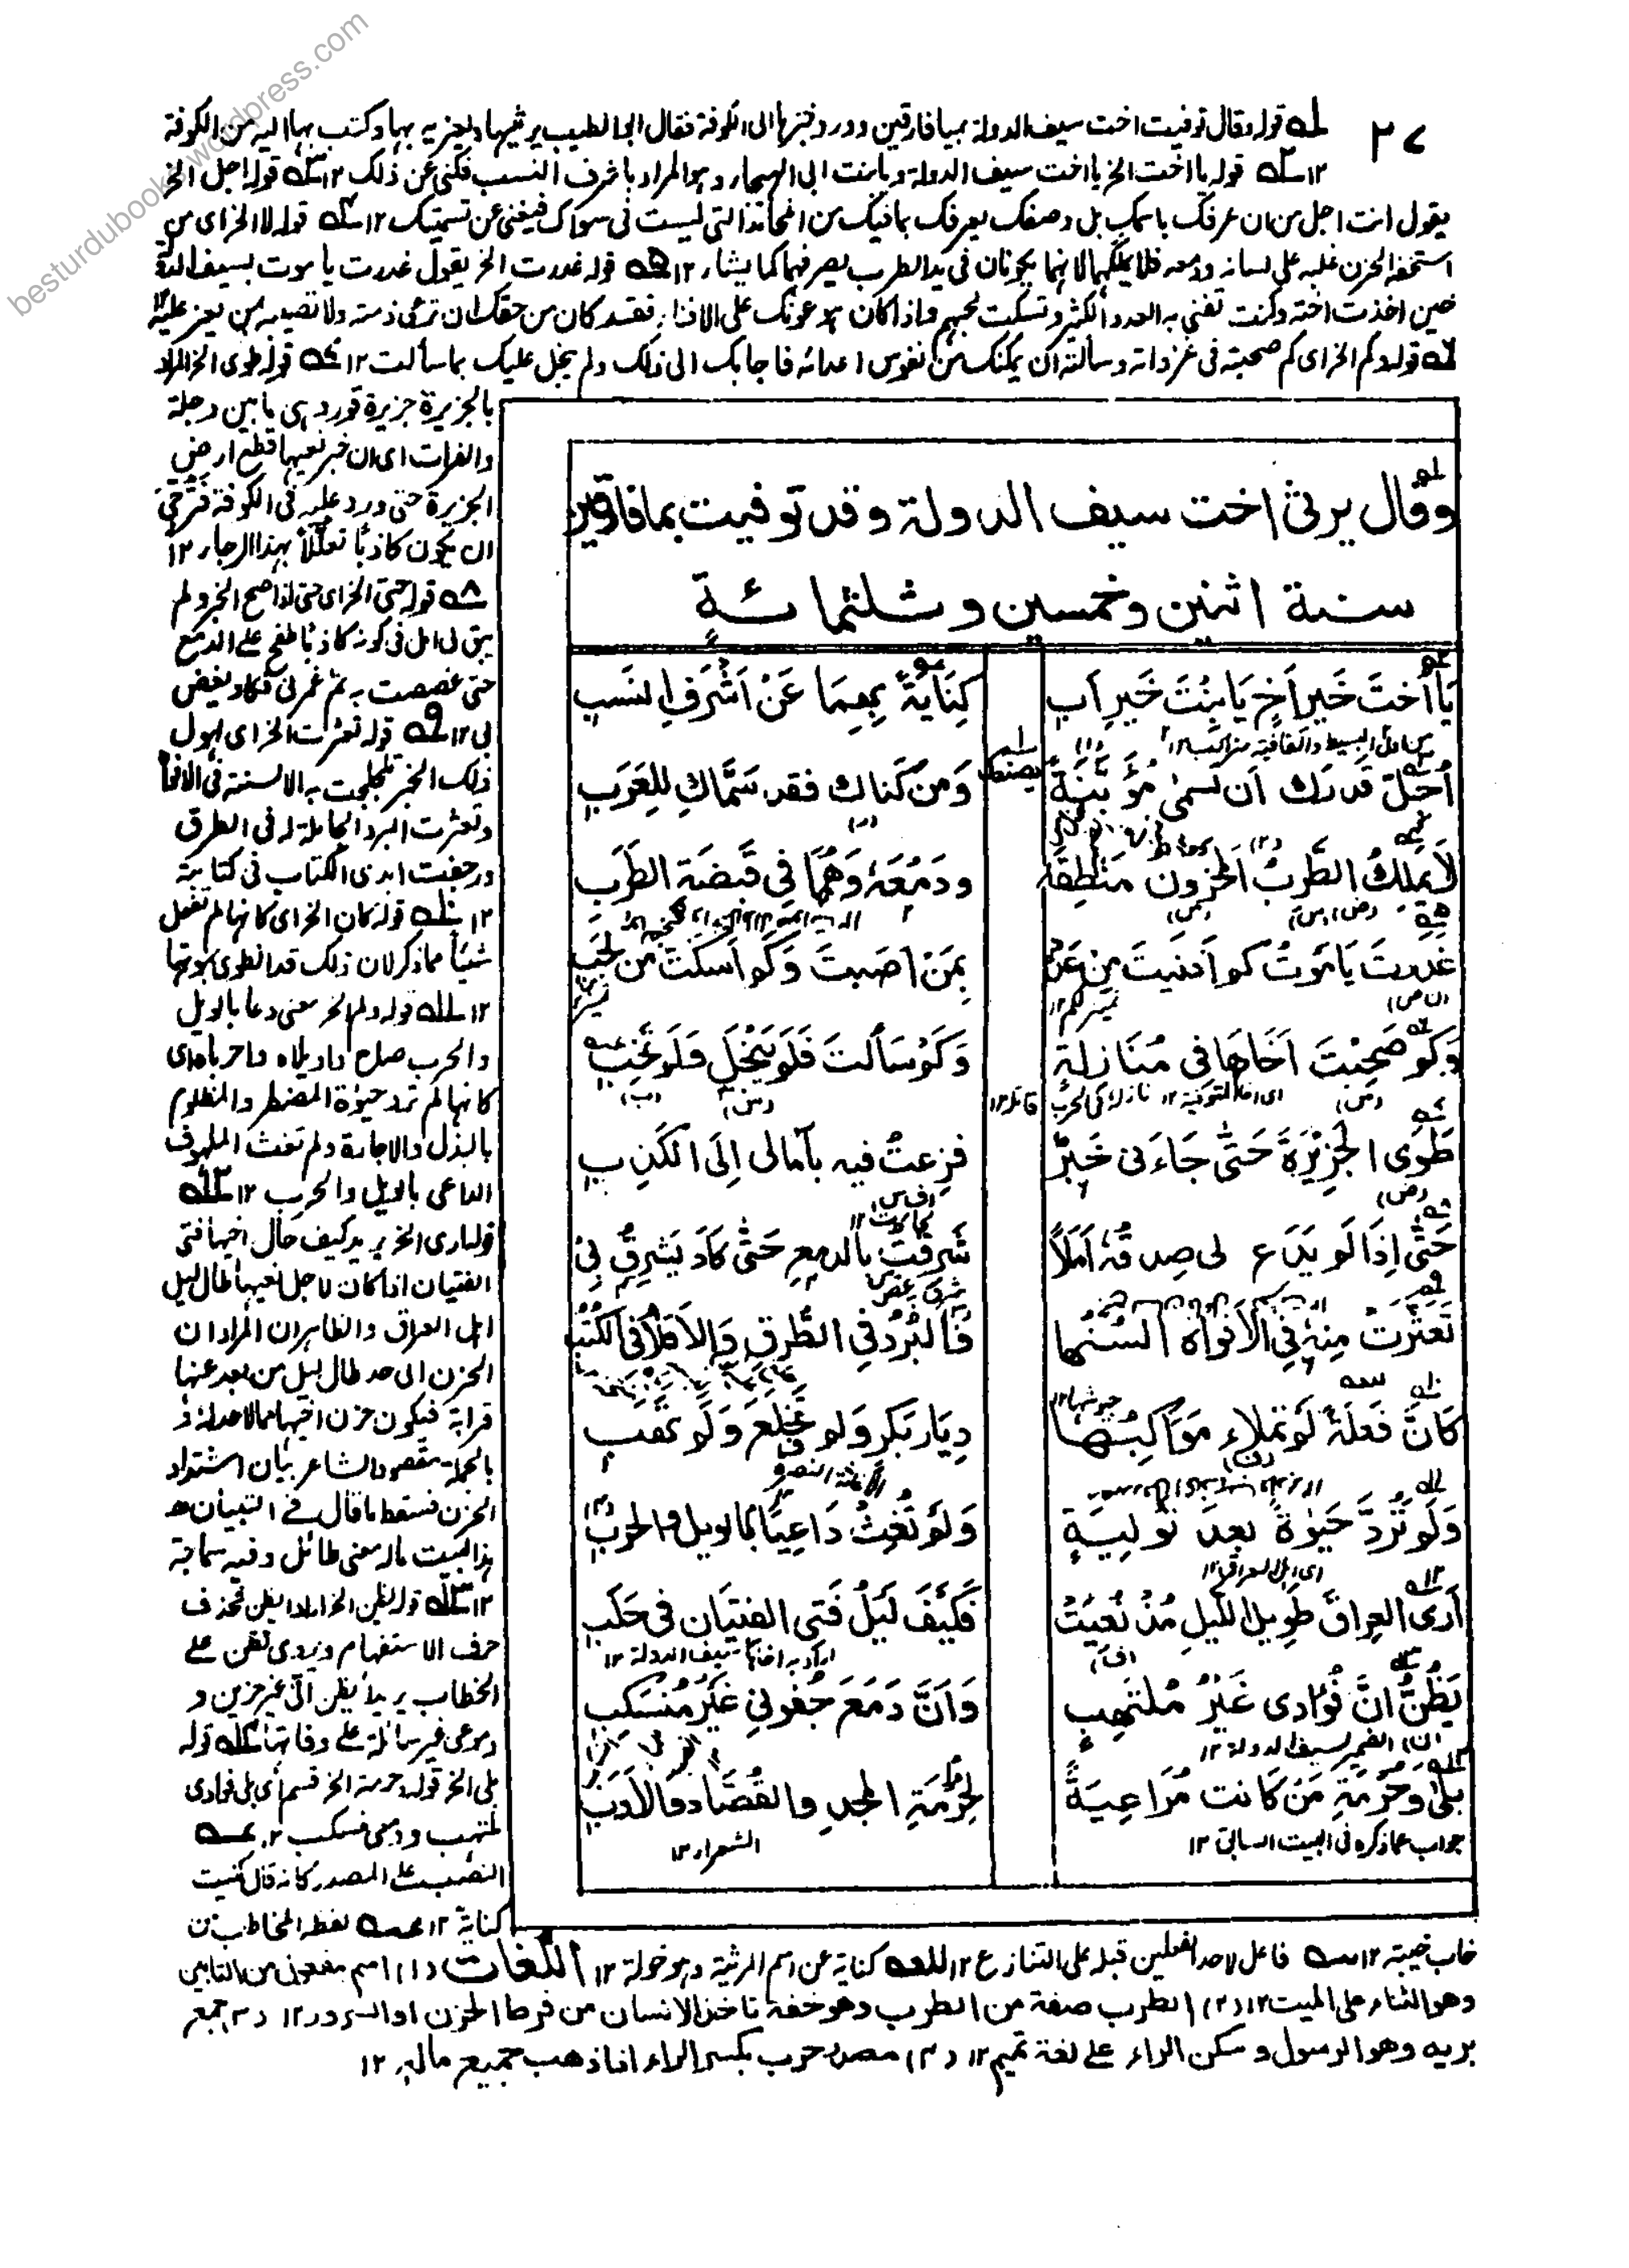 ٢٧
له قوله وقال توفيت اخت سيف الدولة بميافارقين وورد خبرها الى الكوفة فقال ابو الطيب يرثيها ويعزيه بها وكتب بها اليه من الكوفة
١٢ ٢ه قوله يا اخت الخ يا اخت سيف الدولة ويا بنت ابى الهيجاء وهو المراد باشرف النسب فكنى عن ذلك ١٢ ٣ه قوله اجل الخ
يقول انت اجل من ان عرفتك باسمك بل وصفك يعرفك بما فيك من المحامد التى ليست فى سواك فيغنى عن تسميتك ١٢ ٤ه قوله لا الخ اى من
استخفه الحزن غلبه على لسانه ودمعه فلا يملكهما لانهما يكونان فى يد الطرب يصرفهما كما يشاء ١٢ ٥ه قوله غدرت الخ يقول غدرت يا موت بسيف الدولة
حين اخذت اخته وكنت تفنى به العدد الكثير وتسكت لجبهم واذا كان هو عونك على الافناء فقد كان من حقك ان ترعى ذمته ولا تصيبه بمن يعز عليه ١٢
٦ه قوله وكم الخ اى كم صحبته فى غزواته وسألته ان يمكنك من نفوس اعدائه فاجابك الى ذلك ولم يبخل عليك بما سألت ١٢ ٧ه قوله طوى الخ المراد
بالجزيرة جزيرة قور وهى ما بين دجلة
والفرات اى ان خبر نعيها قطع ارض
الجزيرة حتى ورد عليه فى الكوفة فترجى
ان يكون كاذبا تعللا بهذا الرجاء ١٢
٨ه قوله حتى الخ اى حتى اذا صح الخبر ولم
يبق لى امل فى كونه كاذبا طفح على الدمع
حتى غصصت به ثم غمرنى فكاد يغص
بى ١٢ ٩ه قوله تعثرت الخ اى لهول
ذلك الخبر تلجلجت به الالسنة فى الافواه
وتعثرت البرد الحاملة له فى الطرق
ورجفت ايدى الكتاب فى كتابته
١٢ ١٠ه قوله كان الخ اى كانها لم تفعل
شيئا مما ذكر لان ذلك قد انطوى بموتها
١٢ ١١ه قوله ولم الخ معنى دعا بالويل
والحرب صاح واويلاه واحرباه اى
كانها لم ترد حيوة المضطر والمظلوم
بالبذل والاجارة ولم تغث الملهوف
الداعى بالويل والحرب ١٢ ١٢ه
قوله ارى الخ يريد كيف حال اخيها فتى
الفتيان اذا كان لاجل نعيها طال ليل
اهل العراق والظاهر ان المراد ان
الحزن الى حد طال ليل من بعد عنها
قرابة فيكون حزن اخيها مما لا حد له و
بالجملة مقصود الشاعر بيان اشتداد
الحزن فسقط ما قال فى التبيان
هذا البيت ماله معنى طائل وفيه سماجة
١٢ ١٣ه قوله يظن الخ اراد ايظن فحذف
حرف الاستفهام ويروى تظن على
الخطاب يريد ايظن انى غير حزين و
دموعى غير سائلة على وفاتها ١٤ه قوله
بلى الخ قوله وحرمة الخ قسم اى بلى فوادى
ملتهب ودمعى منسكب ١٢
النصب على المصدر كانه قال كنيت
كناية ١٢ لفظ المخاطب من
وقال يرثى اخت سيف الدولة وقد توفيت بميافارقين
سنة اثنين وخمسين وثلثمائة
يَا اُختَ خَيرِ اَخٍ يَا بِنْتَ خَيرِ اَبٍ كِنَايَةً بِهِمَا عَنْ اَشْرَفِ النَسَبِ
اُجِلُّ قَدرَكِ اَن تسمى مُؤَبَّنَةً وَمَنْ كَنَاكِ فقد سَمَّاكِ لِلعَرَبِ
لَا يَملِكُ الطَّرِبُ المَحْزونُ مَنْطِقَهُ ودَمْعَهُ وَهُمَا فِي قَبضَةِ الطَّرَبِ
غدرتَ يَا مَوتُ كم اَفنَيتَ مِن عَدَدٍ بِمَنْ اَصَبتَ وَكم اَسكَتَّ من لَجَبِ
وَكم صَحِبْتَ اَخَاهَا فِي مُنَازلةٍ وَكم سَأَلتَ فَلَم يَبْخَل وَلَم تَخِبِ
اى اخا المتوفية ١٢
طَوَى الجَزِيْرَةَ حَتّٰى جَاءَنى خَبَرٌ فزِعتُ فيه بآمالى اِلَى الكَذِبِ
حَتّٰى اِذَا لَم يَدَع لى صِدقُهٗ اَمَلاً شَرِقتُ بالدمعِ حَتّٰى كَادَ يَشرِقُ بِىْ
تَعَثَّرَتْ مِنهُ فِي الاَفوَاهِ اَلسُنُهَا وَالبُرْدُ فِي الطُّرقِ وَالاَقلَامُ فِى الكُتُبِ
كَاَنَّ فَعلَةَ لَم تملاء مَوَاكِبُها دِيَارَ بَكرٍ وَلم تَخلَع وَلَم تَهَبِ
وَلَم تَرُدَّ حَيٰوةً بعدَ تَولِيَةٍ وَلَم تُغِثْ دَاعِيًا بالويلِ والحربِ
اى اهل العراق ١٢
اَرَى العِرَاقَ طَوِيلَ اللَّيلِ مُذْ نُعِيَتْ فَكَيْفَ لَيْلُ فَتَى الفِتيَانِ فى حَلَبِ
اراد به اخاها سيف الدولة ١٢
يَظُنُّ اَنَّ فُؤَادى غَيْرُ مُلتَهِبٍ وَاَنَّ دَمعَ جُفُونِي غَيْرُ مُنْسَكِبِ
الضمير لسيف الدولة ١٢
بَلٰى وَحُرْمَةِ مَنْ كَانت مُرَاعِيَةً لِحُرْمَةِ المجدِ والقُصَّادِ والاَدَبِ
جواب عما ذكره فى البيت السابق ١٢ الشعراء ١٢
خاب خيبة ١٢ فاعل لاحد الفعلين قبله على التنازع ١٢ كناية عن اسم المرثية وهو خولة ١٢ اللغات (١) اسم مفعول من التابين
وهو الثناء على الميت ١٢ (٢) الطرب صفة من الطرب وهو خفة تاخذ الانسان من فرط الحزن او السرور ١٢ (٣) جمع
بريد وهو الرسول وسكن الراء على لغة تميم ١٢ (٤) مصدر حرب بكسر الراء اذا ذهب جميع ماله ١٢
besturdubooks.wordpress.com